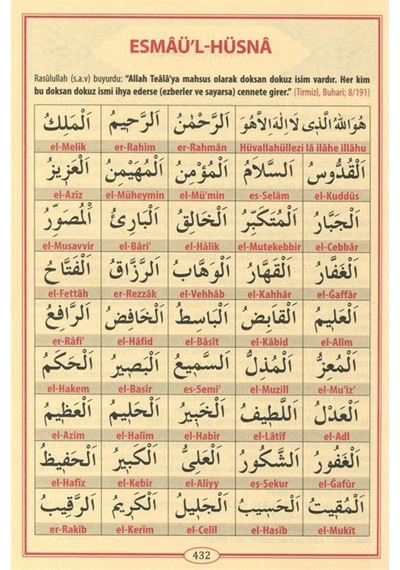 ESMÂÜ'L-HÜSNÂ
Rasûlullah (s.a.v) buyurdu: “Allah Teâlâ'ya mahsus olarak doksan dokuz isim vardır. Her kim
bu doksan dokuz ismi ihya ederse (ezberler ve sayarsa) cennete girer.” (Tirmizî, Buhari; 8/191)
هُوَ اللهُ الَّذِي لَا اِلٰهَ اِلَّا هُوَ اَلرَّحْمٰنُ اَلرَّحِيمُ اَلْمَلِكُ
Hüvallahüllezi lâ ilâhe illâhu er-Rahmân er-Rahîm el-Melik
اَلْقُدُّوسُ اَلسَّلَامُ اَلْمُؤْمِنُ اَلْمُهَيْمِنُ اَلْعَزِيزُ
el-Kuddûs es-Selâm el-Mü'min el-Müheymin el-Azîz
اَلْجَبَّارُ اَلْمُتَكَبِّرُ اَلْخَالِقُ اَلْبَارِئُ اَلْمُصَوِّرُ
el-Cebbâr el-Mutekebbir el-Hâlik el-Bâri' el-Musavvir
اَلْغَفَّارُ اَلْقَهَّارُ اَلْوَهَّابُ اَلرَّزَّاقُ اَلْفَتَّاحُ
el-Gaffâr el-Kahhâr el-Vehhâb er-Rezzâk el-Fettâh
اَلْعَلِيمُ اَلْقَابِضُ اَلْبَاسِطُ اَلْخَافِضُ اَلرَّافِعُ
el-Alîm el-Kâbid el-Bâsît el-Hâfid er-Râfi'
اَلْمُعِزُّ اَلْمُذِلُّ اَلسَّمِيعُ اَلْبَصِيرُ اَلْحَكَمُ
el-Mu'iz' el-Muzill es-Semi' el-Basîr el-Hakem
اَلْعَدْلُ اَللَّطِيفُ اَلْخَبِيرُ اَلْحَلِيمُ اَلْعَظِيمُ
el-Adl el-Lâtîf el-Habîr el-Halîm el-Azîm
اَلْغَفُورُ اَلشَّكُورُ اَلْعَلِيُّ اَلْكَبِيرُ اَلْحَفِيظُ
el-Gafûr eş-Şekur el-Aliyy el-Kebir el-Hafîz
اَلْمُقِيتُ اَلْحَسِيبُ اَلْجَلِيلُ اَلْكَرِيمُ اَلرَّقِيبُ
el-Mukît el-Hasîb el-Celîl el-Kerîm er-Rakîb
432